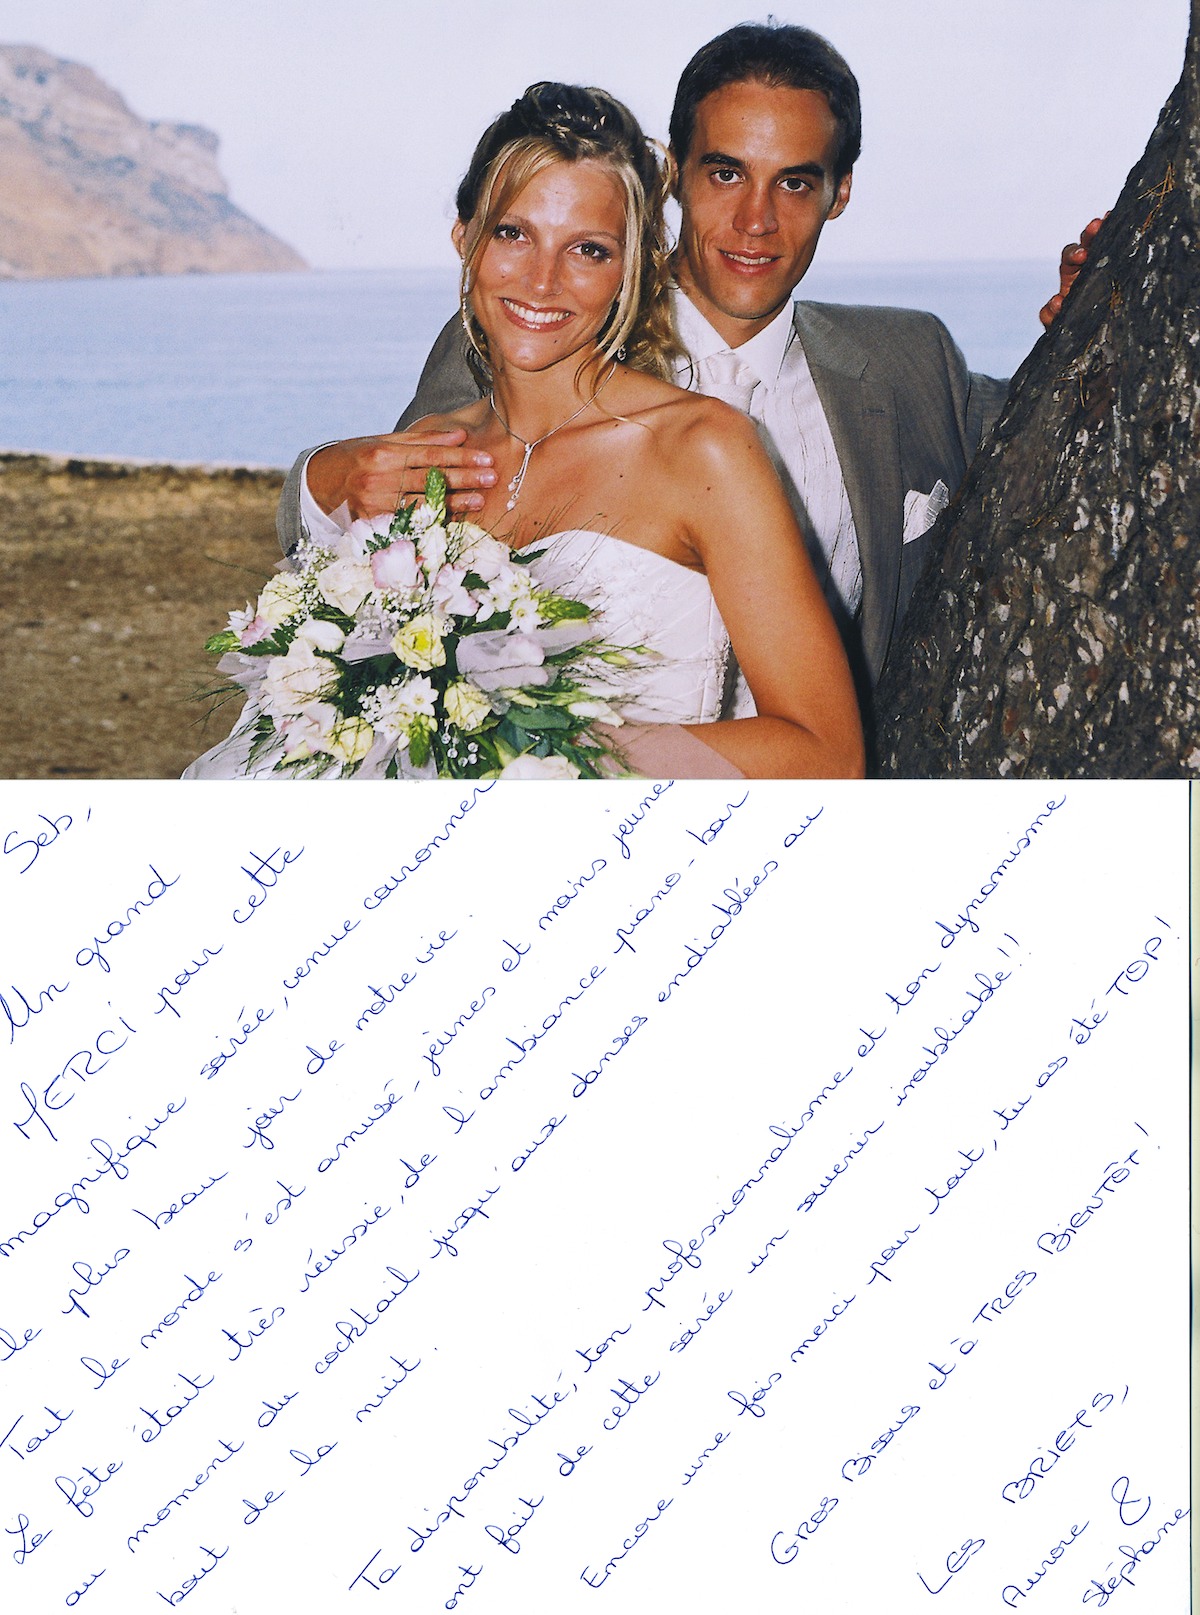 Seb,
Un grand
MERCI pour cette
magnifique soirée, venue couronner
le plus beau jour de notre vie.
Tout le monde s'est amusé, jeunes et moins jeunes
La fête était très réussie, de l'ambiance piano-bar
au moment du cocktail jusqu'aux danses endiablées au
bout de la nuit.
Ta disponibilité, ton professionnalisme et ton dynamisme
ont fait de cette soirée un souvenir inoubliable!!
Encore une fois merci pour tout, tu as été TOP!
GROS BISOUS et à TRES BIENTÔT!
LES BRIETS,
Aurore &
Stéphane